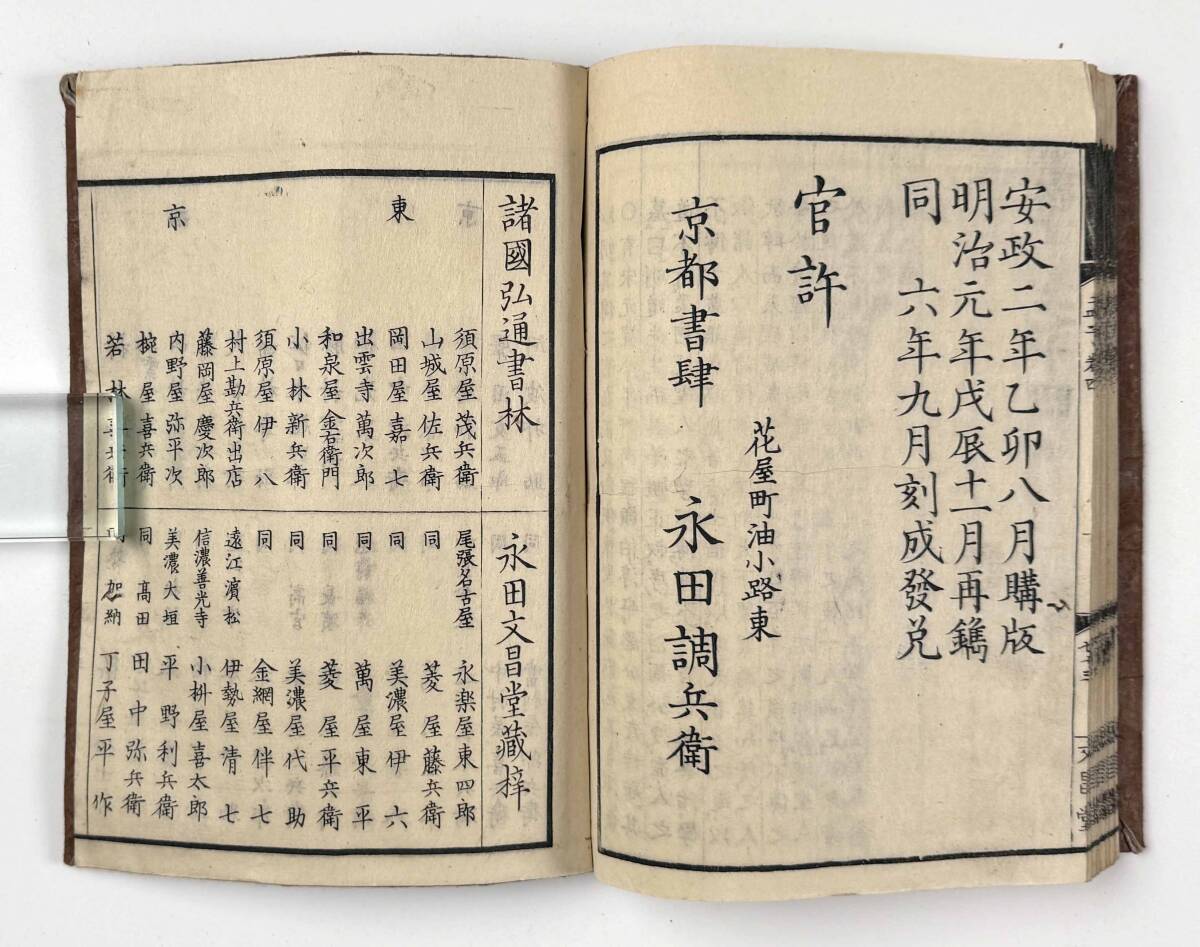 安政二年乙卯八月購版
明治元年戊辰十一月再鐫
同　六年九月刻成發兌
官許
花屋町油小路東
京都書肆　永田調兵衛
文昌堂
諸國弘通書林　永田文昌堂藏梓
東京
須原屋茂兵衛
山城屋佐兵衛
岡田屋嘉七
出雲寺萬次郎
和泉屋金右衛門
小林新兵衛
須原屋伊八
村上勘兵衛出店
藤岡屋慶次郎
内野屋弥平次
椀屋喜兵衛
若林喜兵衛
尾張名古屋　永楽屋東四郎
同　菱屋藤兵衛
同　美濃屋伊六
同　萬屋東平
同　菱屋平兵衛
同　美濃屋代助
同　金網屋伴七
遠江濱松　伊勢屋清七
信濃善光寺　小枡屋喜太郎
美濃大垣　平野利兵衛
同　高田　田中弥兵衛
加納　丁子屋平作